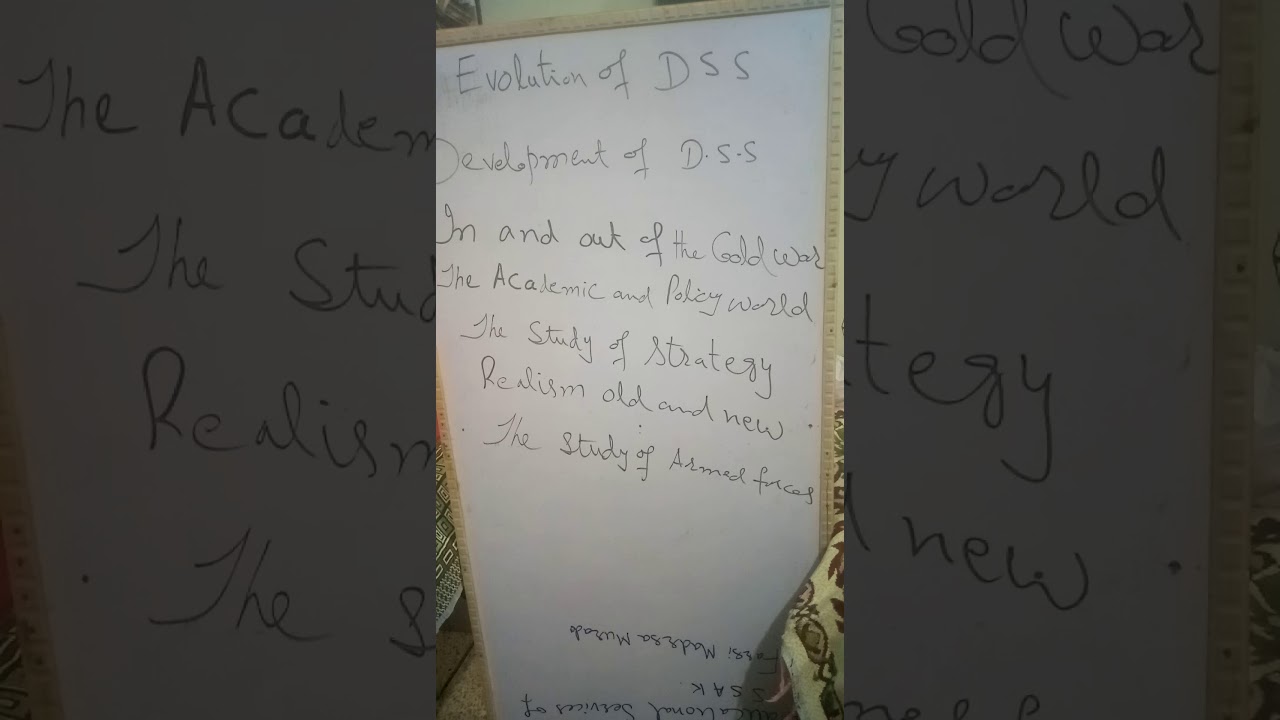 Evolution of DSS
Development of D.S.S
In and out of the Cold War
The Academic and Policy world
The Study of Strategy
Realism old and new .
. The Study of Armed forces
Farsi Madrsa Murado
SSAK
Educational Services of